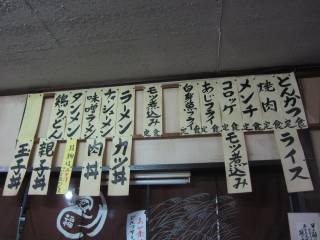 とんかつ定食
焼肉定食
メンチ定食
コロッケ定食
あじフライ定食
白身魚フライ定食
モツ煮込み定食
ラーメン
チャーシューメン
味噌ラーメン
タンメン
鍋うどん
ライス
モツ煮込み
カツ丼
肉丼
親子丼
玉子丼